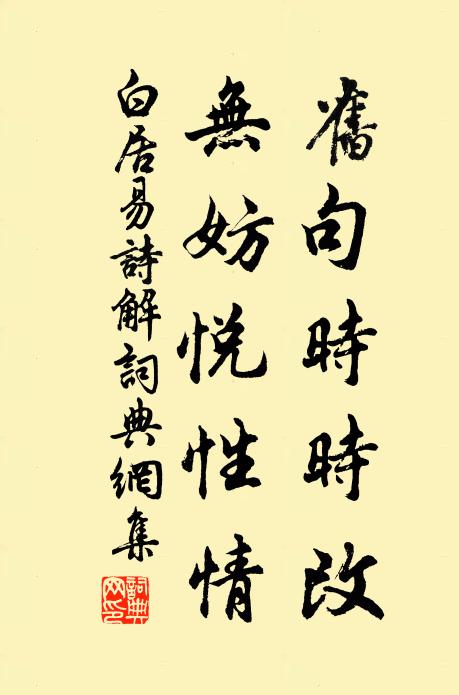 舊句時時改
無妨悅性情
白居易詩解詞典網集
詞典網印